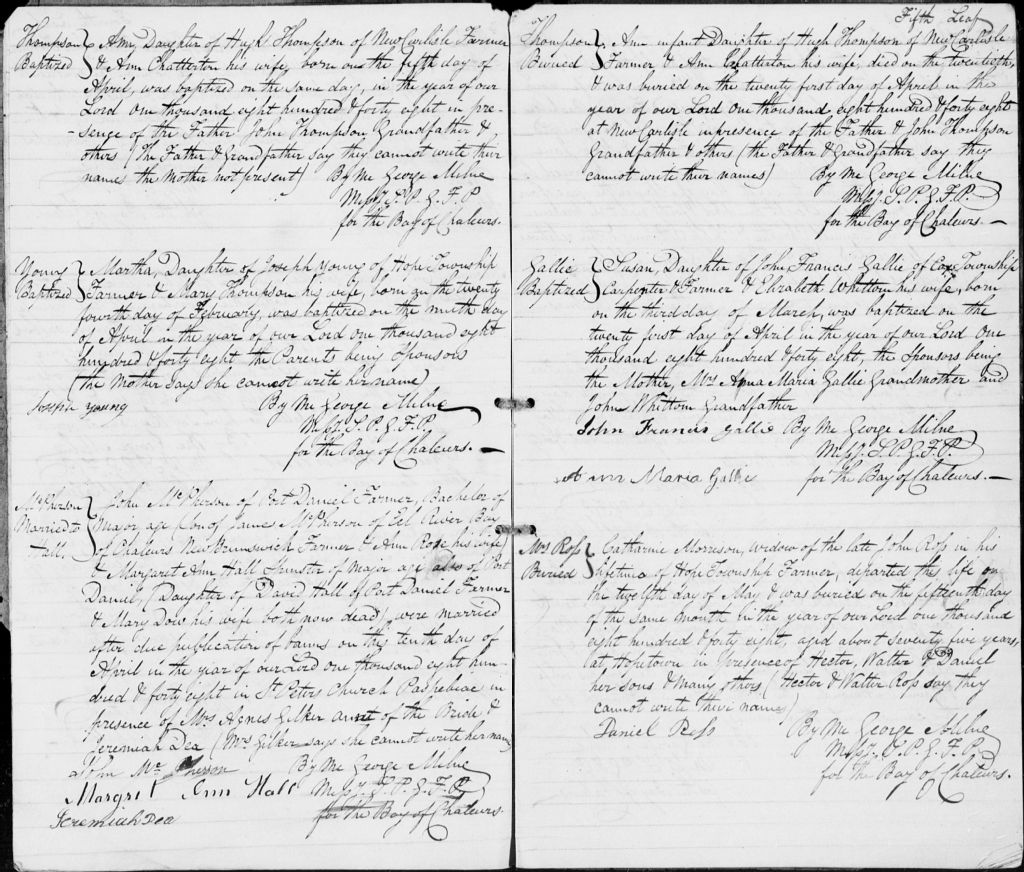 Thompson Baptized } Ann, Daughter of Hugh Thompson of New Carlisle Farmer
& Ann Chatterton his wife, born on the fifth day of
April, was baptized on the same day, in the year of our
Lord One thousand eight hundred & forty eight in pre-
-sence of the Father John Thompson Grandfather &
others (The Father & Grandfather say they cannot write their
names the Mother not present) By Me George Milne
Missy. S. P. G. F. P
for the Bay of Chaleurs.
Young Baptized } Martha, Daughter of Joseph Young of Hope Township
Farmer & Mary Thompson his wife, born on the twenty
fourth day of February, was baptized on the ninth day
of April in the year of our Lord one thousand eight
hundred & forty eight the Parents being Sponsors
(the Mother says she cannot write her name)
Joseph Young By Me George Milne
Missy. S. P. G. F. P.
for the Bay of Chaleurs. —
McPherson Married to Hall. } John McPherson of Port Daniel Farmer, Bachelor of
major age (Son of James McPherson of Eel River Bay
of Chaleurs New Brunswick Farmer & Ann Rose his wife)
& Margaret Ann Hall Spinster of Major age also of Port
Daniel, (Daughter of David Hall of Port Daniel Farmer
& Mary Dow his wife both now dead) were married
after due publication of banns on the tenth day of
April in the year of our Lord one thousand eight hun-
dred & forty eight in St Peters Church Paspebiac in
presence of Mrs Agnes Gilker aunt of the Bride &
Jeremiah Dea (Mrs Gilker says she cannot write her name
John Mc Pherson By Me George Milne
Margret Ann Hall Missy. S. P. G. F. P.
Jeremiah Dea for the Bay of Chaleurs.
Fifth Leaf
Thompson Buried } Ann infant Daughter of Hugh Thompson of New Carlisle
Farmer & Ann Chatterton his wife, died on the twentieth,
& was buried on the twenty first day of April in the
year of our Lord One thousand eight hundred & forty eight
at New Carlisle in presence of the Father & John Thompson
Grandfather & others (the Father & Grandfather say they
cannot write their names) By Me George Milne
Missy. S. P. G. F. P.
for the Bay of Chaleurs. —
Gallie Baptized } Susan, Daughter of John Francis Gallie of Cox Township
Carpenter & Farmer & Elizabeth Whittom his wife, born
on the third day of March, was baptized on the
twenty first day of April in the year of our Lord One
thousand eight hundred & forty eight, the Sponsors being
the Mother, Mrs Anna Maria Gallie Grandmother and
John Whittom Grandfather
John Francis Gallie By Me George Milne
Missy. S. P. G. F. P.
Ann Maria Gallie for the Bay of Chaleurs. —
Mrs Ross Buried } Catharine Morrison, widow of the late John Ross in his
lifetime of Hope Township Farmer, departed this life on
the twelfth day of May & was buried on the fifteenth day
of the same month in the year of our Lord one thousand
eight hundred & forty eight, aged about seventy five years,
at Hopetown in Presence of Hector, Walter & Daniel
her sons & many others (Hector & Walter Ross say they
cannot write their names)
Daniel Ross By Me George Milne
Missy. S. P. G. F. P.
for the Bay of Chaleurs.